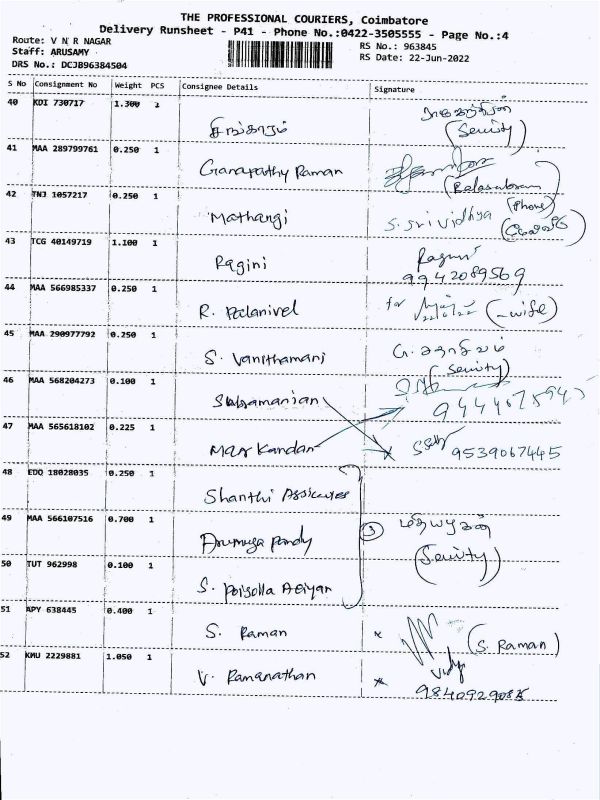 THE PROFESSIONAL COURIERS, Coimbatore
Delivery Runsheet - P41 - Phone No.:0422-3505555 - Page No.:4
Route: V N R NAGAR
RS No.: 963845
Staff: ARUSAMY
RS Date: 22-Jun-2022
DRS No.: DCJB96384504
S No Consignment No Weight PCS Consignee Details Signature
40 KDI 730717 1.300 1 சிங்காரம்
(Security)
41 MAA 289799761 0.250 1 Ganapathy Raman
(Balasubram
42 TNJ 1057217 0.250 1 Mathangi S. Srividhya (Phone)
43 TCG 40149719 1.100 1 Ragini Ragini
9942089569
44 MAA 566985337 0.250 1 R. Palanivel for 22/6/22 (-wife)
45 MAA 290977792 0.250 1 S. Vanithamani
(Security)
46 MAA 568204273 0.100 1 Subramanian
47 MAA 565618102 0.225 1 Markandan 9539067445
48 EDQ 18028035 0.250 1 Shanthi
49 MAA 566107516 0.700 1 Arumuga Pandy 3
(Security)
50 TUT 962998 0.100 1 S.
51 APY 638445 0.400 1 S. Raman x (S. Raman)
52 KMU 2229881 1.050 1 V. Ramanathan x